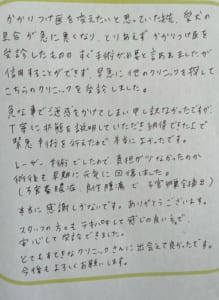 かかりつけ医を変えたいと思っていた時、愛犬の
具合が急に悪くなり、とりあえずかかりつけ医を
受診したもののすぐ手術が必要と言われましたが
信用することができず、早急に他のクリニックを探して
こちらのクリニックを受診しました。
急な事でご迷惑をかけてしまい申し訳なかったですが、
丁寧に状態を説明していただき納得できた上で
緊急手術を行えたので本当に良かったです。
レーザー手術でしたので、負担が少なかったのか
術後も早期に元気に回復しました。
(子宮蓄膿症、乳腺腫瘍で子宮卵巣全摘出)
本当に感謝しかないです。ありがとうございます。
スタッフの方もテキパキして感じの良い方で、
安心して受診できました。
とてもすてきなクリニックさんに出会えて良かったです。
今後もよろしくお願いします。